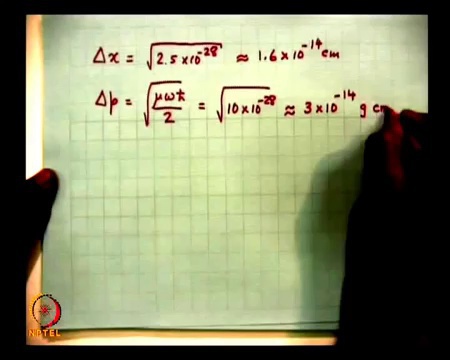 Δx = √2.5×10⁻²⁸ ≈ 1.6×10⁻¹⁴ cm
Δp = √μωħ/2 = √10×10⁻²⁸ ≈ 3×10⁻¹⁴ g c
NPTEL